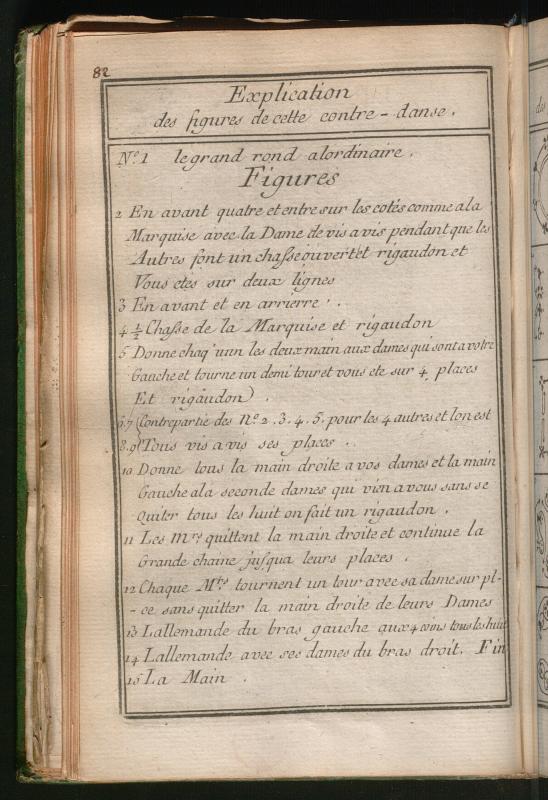 82
Explication
des figures de cette contre-danse.
N.º 1 le grand rond alordinaire.
Figures
2 En avant quatre et entre sur les cotés comme a la
Marquise avec la Dame de vis a vis pendant que les
Autres font un chasse ouvert et rigaudon et
Vous etes sur deux lignes
3 En avant et en arrierre.
4 1/2 Chasse de la Marquise et rigaudon
5 Donne chaq'unn les deux main aux dames qui sont a votre
Gauche et tourne un demi tour et vous ete sur 4 places
Et rigaudon.
6.7 Contrepartie des Nº 2. 3. 4. 5. pour les 4 autres et lon est
8.9 Tous vis a vis ses places.
10 Donne tous la main droite a vos dames et la main
Gauche ala seconde dames qui vien a vous sans se
Quiter tous les huit on fait un rigaudon.
11 Les Mrs quittent la main droite et continue la
Grande chaine jusqua leurs places.
12 Chaque Mrs tournent un tour avec sa dame sur pl-
-ce sans quitter la main droite de leurs Dames
13 Lallemande du bras gauche aux 4 coins tous les huit
14 Lallemande avec ses dames du bras droit. Fin
15 La Main.
des